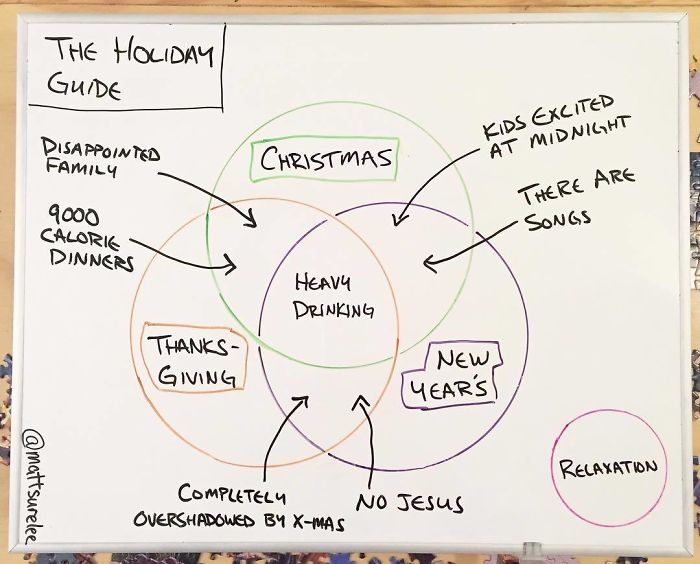 THE HOLIDAY
GUIDE
DISAPPOINTED
FAMILY
9000
CALORIE
DINNERS
CHRISTMAS
KIDS EXCITED
AT MIDNIGHT
THERE ARE
SONGS
HEAVY
DRINKING
THANKS-
GIVING
NEW
YEAR'S
COMPLETELY
OVERSHADOWED BY X-MAS
NO JESUS
RELAXATION
@mattsurelee